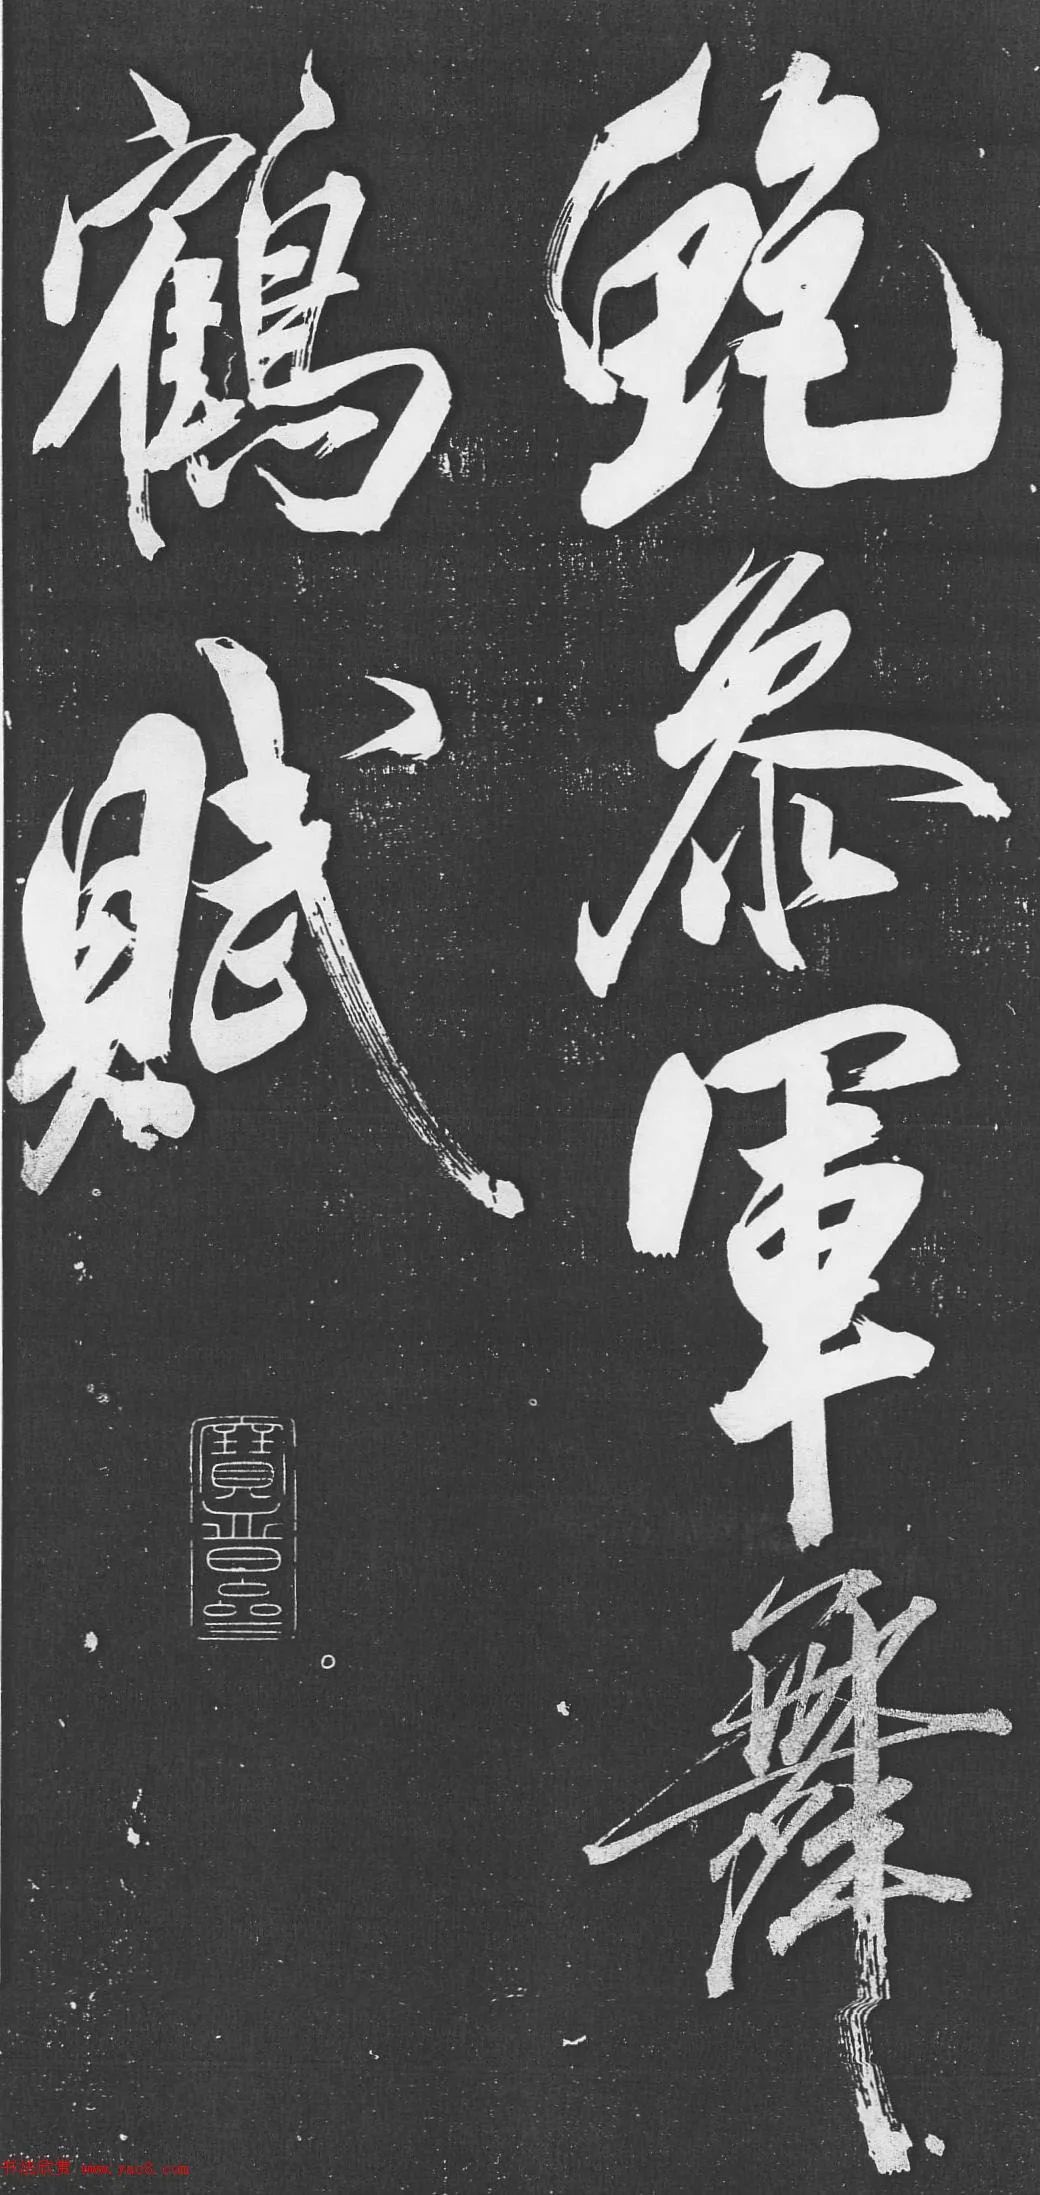 鮑參軍舞
鶴賦
寶晉齋
书法欣赏 www.yac8.com